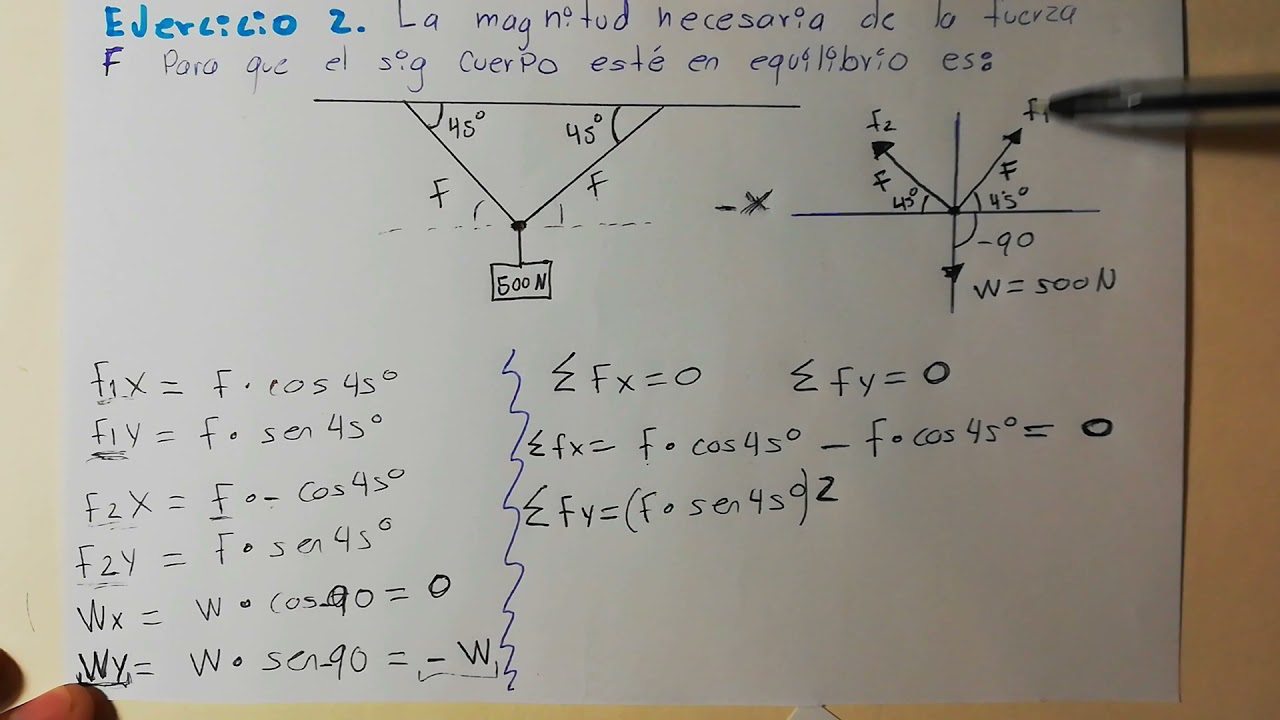 Ejercicio 2. La magnitud necesaria de la fuerza
F Para que el sig cuerpo esté en equilibrio es:
45° 45°
F F
500N
-X
f2 f1
F F
45° 45°
-90
W = 500N
f1X = F · cos 45°
f1Y = f · sen 45°
f2X = f · - cos 45°
F2Y = F · sen 45°
Wx = W · cos-90 = 0
WY = W · sen-90 = - W
Σ Fx = 0 Σ fy = 0
Σfx = f · cos 45° - f · cos 45° = 0
Σ Fy = (f · sen 45°)2